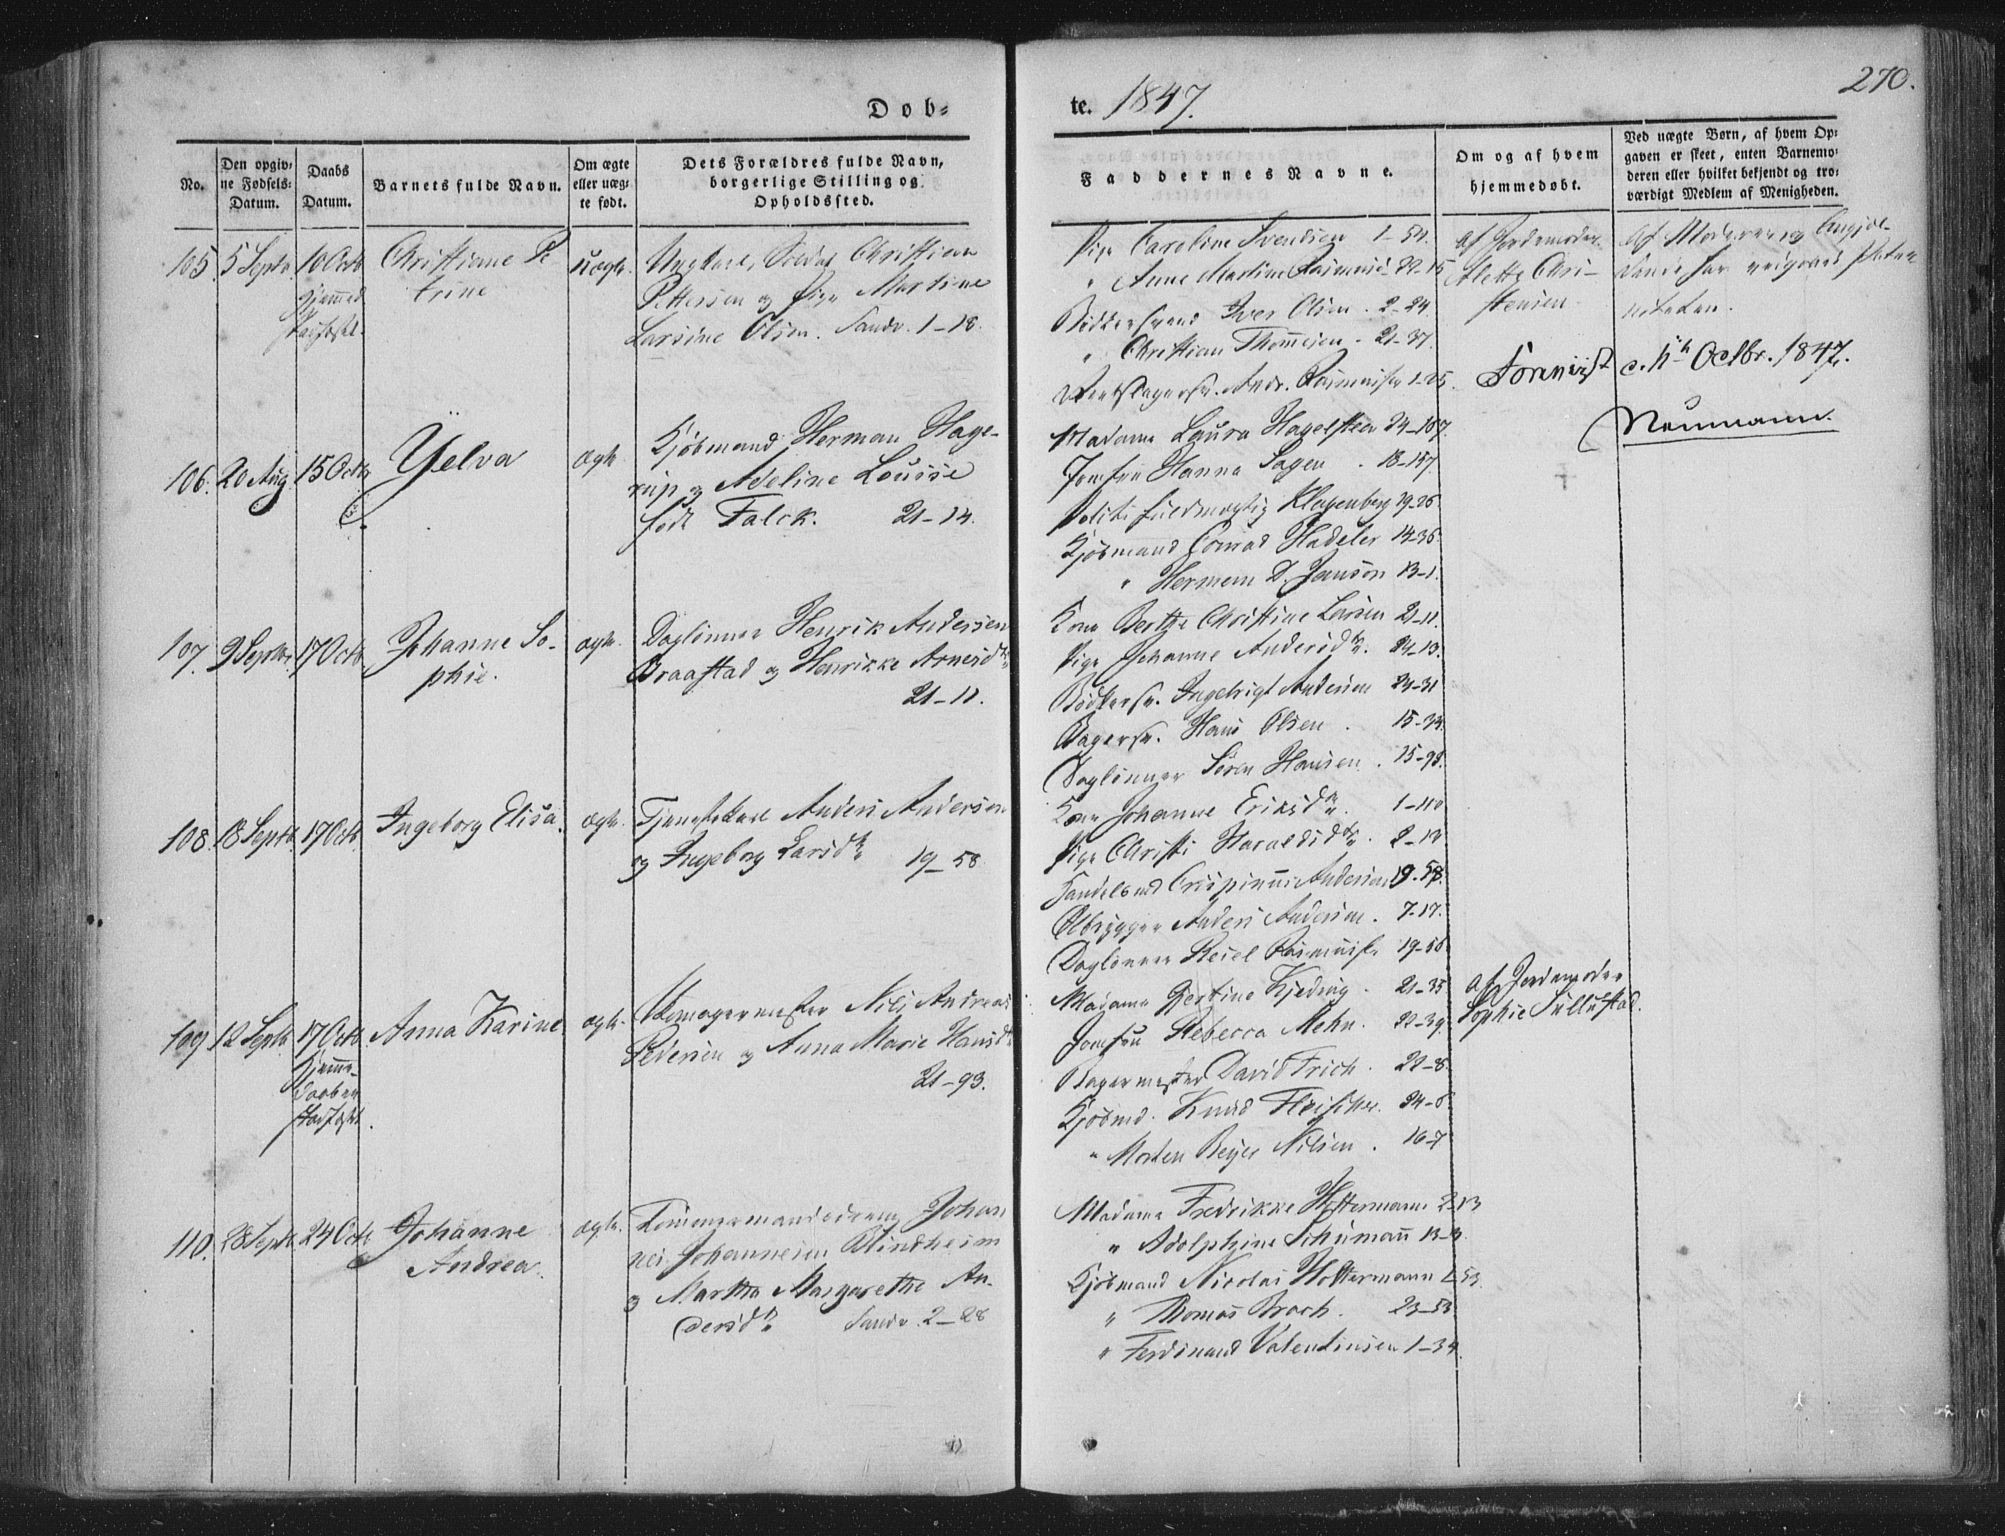 Døb-
te. 1847.
270.
No.
Den opgiv-
ne Fødsels-
Datum.
Daabs
Datum.
Barnets fulde Navn.
Om ægte
eller uæg-
te født.
Dets Forældres fulde Navn,
borgerlige Stilling og
Opholdssted.
Faddernes Navne.
Om og af hvem
hjemmedøbt.
Ved uægte Børn, af hvem Op-
gaven er skeet, enten Barnemo-
deren eller hvilket bekjendt og tro-
værdigt Medlem af Menigheden.
105. 5 Septb. 10 Octb. Christiane Pe
trine
hjemmed.
stadfæst.
uægte.
Ungkarl, Soldat Christian
Pettersen og Pige Martine
Larsine Olsen. Sandv. 1-18.
Pige Caroline Svendsen 1-54.
" Anne Martine Rasmusd. 22-15
Bødkersvend Iver Olsen. 2-24.
" Christian Thommesen. 21-37.
Andr. Rasmussen 1-25.
af Jordemoder
Alette Chri-
stensen
Af Moderen
har
Foreviist d. Octbr. 1847.
Neumann.
106. 20 Aug. 15 Octb. Yelva ægte.
Kjøbmand Herman Hage-
rup og Adeline Louise
født Falck. 21-14.
Madame Laura Hagelsteen 24-107.
Jomfru Hanna Sagen. 18-157
Politifuldmægtig Klagenberg 19-26
Kjøbmand Conrad Hadeler 14-36
" Hermem D. Janson 13-1.
107. 9 Septbr. 17 Octb. Johanne So-
phie.
ægte.
Daglønner Henrik Andersen
Braastad og Henrikke Arnesdtr.
21-11.
Kone Berthe Christine Larsen 21-11
Pige Johanne Andersdtr. 24-13.
Bødkersv. Ingebrigt Andersen 24-31
Bagersv. Hans Olsen. 15-34.
Daglønner Søren Hansen. 15-98.
108. 18 Septb. 17 Octb. Ingeborg Elisa. ægte.
Tjenestekarl Anders Anderson
og Ingeborg Larsdtr. 19-58.
Kone Johanne Eriksdtr. 1-110
Pige Christi Haraldsdtr. 2-13
Handelsmd Crispinus Andersen 19-58.
Ølbrygger Anders Andersen. 7-17.
Daglønner Reiel Rasmuss. 19-56
109 12 Septb. 17 Octb. Anna Karine ægte.
Hjemme-
daaben
stadfæst.
Skomagermester Nils Andreas
Pedersen og Anna Marie Hansdtr.
21-93.
Madame Gjertine Kjeding. 21-35
Jomfru Rebecca Mehn. 22-39.
Bagermester David Frich. 22-8.
Kjøbmd. Knud Fleischer. 24-6.
" Morten Beyer Nilsen. 16-7
af Jordemoder
Sophie Tullustad.
110. 28 Septb. 24 Octb. Johanne
Andrea.
ægte.
Tømmermandsdreng Johan
nes Johannesen Blindheim
og Martha Margarethe An-
dersdtr. Sandv. 2-28
Madame Fredrikke Holtermann 2-13
" Adolphine Schumann 13-3.
Kjøbmand Nicolai Holtermann 2-53.
" Thomas Broch. 23-53
" Ferdinand Valentinsen 1-34.